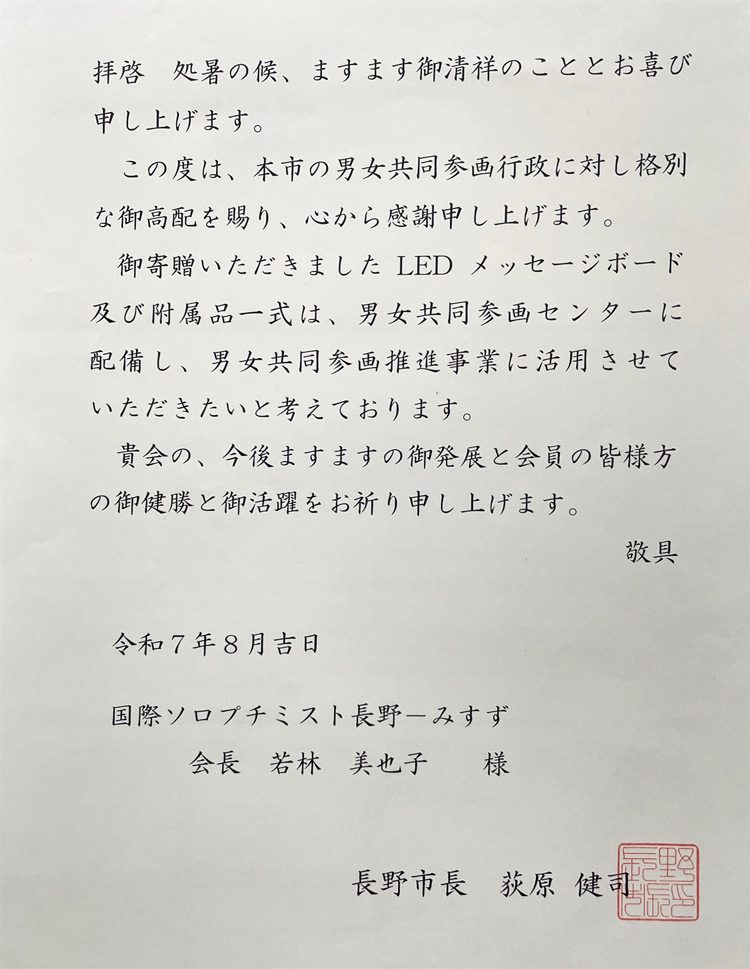 拝啓　処暑の候、ますます御清祥のこととお喜び
申し上げます。
　この度は、本市の男女共同参画行政に対し格別
な御高配を賜り、心から感謝申し上げます。
　御寄贈いただきました LED メッセージボード
及び附属品一式は、男女共同参画センターに
配備し、男女共同参画推進事業に活用させて
いただきたいと考えております。
　貴会の、今後ますますの御発展と会員の皆様方
の御健勝と御活躍をお祈り申し上げます。
敬具
令和７年８月吉日
国際ソロプチミスト長野－みすず
会長　若林　美也子　　様
長野市長　荻原 健司